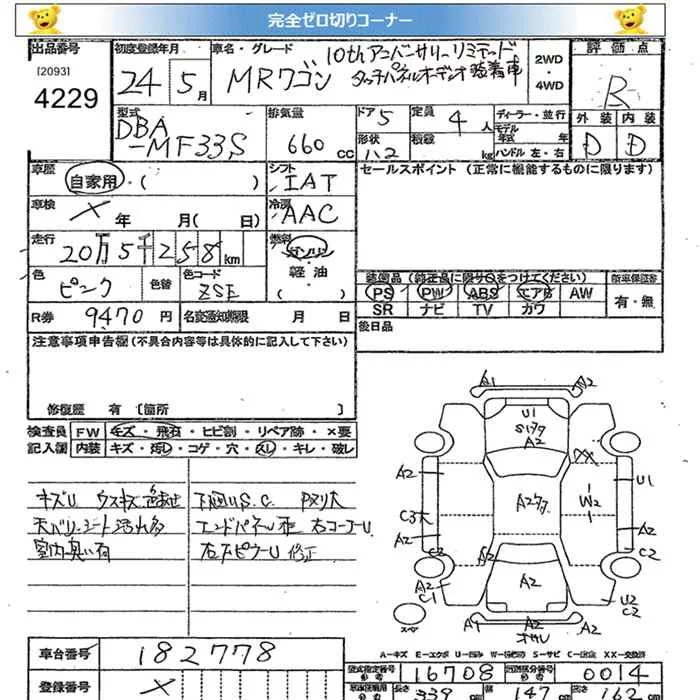 完全ゼロ切りコーナー
出品番号
[2093]
4229
初度登録年月
24年 5月
車名・グレード
MRワゴン
10thアニバーサリーリミテッド
タッチパネルオーディオ装着車
2WD・4WD
評価点
R
外装 内装
D D
型式
DBA-MF33S
排気量
660 cc
ドア 5
形状 ハ2
定員 4人
積載 kg
ディーラー・並行
モデル年式 年
ハンドル 左・右
車歴
自家用・( )
シフト
IAT
セールスポイント (正常に機能するものに限ります)
車検
× 年 月( 日)
冷房
AAC
走行
20万5千258km
燃料
ガソリン
軽油
( )
色
ピンク
色替
色コード
ZSE
装備品 (純正品に限り○をつけてください)
PS PW ABS エアB AW
SR ナビ TV カワ
新車保証書
有・無
R券 9470円
名変通知期限 月 日
後日品
注意事項申告欄(不具合内容等は具体的に記入して下さい)
修復歴 有 [箇所 ]
検査員記入欄
FW キズ・飛石・ヒビ割・リペア跡・×要
内装 キズ・汚れ・コゲ・穴・スレ・キレ・破レ
キズU ウスキズ
下回りS.C.
天バリ、シート汚れ多
エンドパネル
右コーナーU
室内臭い有
右ピラーU 修正
A1
W2
U1
Sワク
A2
XX
A2
U1
A2
W2
C3大
A2
A2
C2
C2
A2
A2
A2
C1
U2
C2
A2
A2
スペア
A-キズ E-エクボ U-凹み W-補修跡 S-サビ C-腐食 XX-交換済
車台番号
182778
型式指定番号
16708
類別区分番号
0014
登録番号
×
長さ 339 cm
幅 147 cm
高さ 162 cm